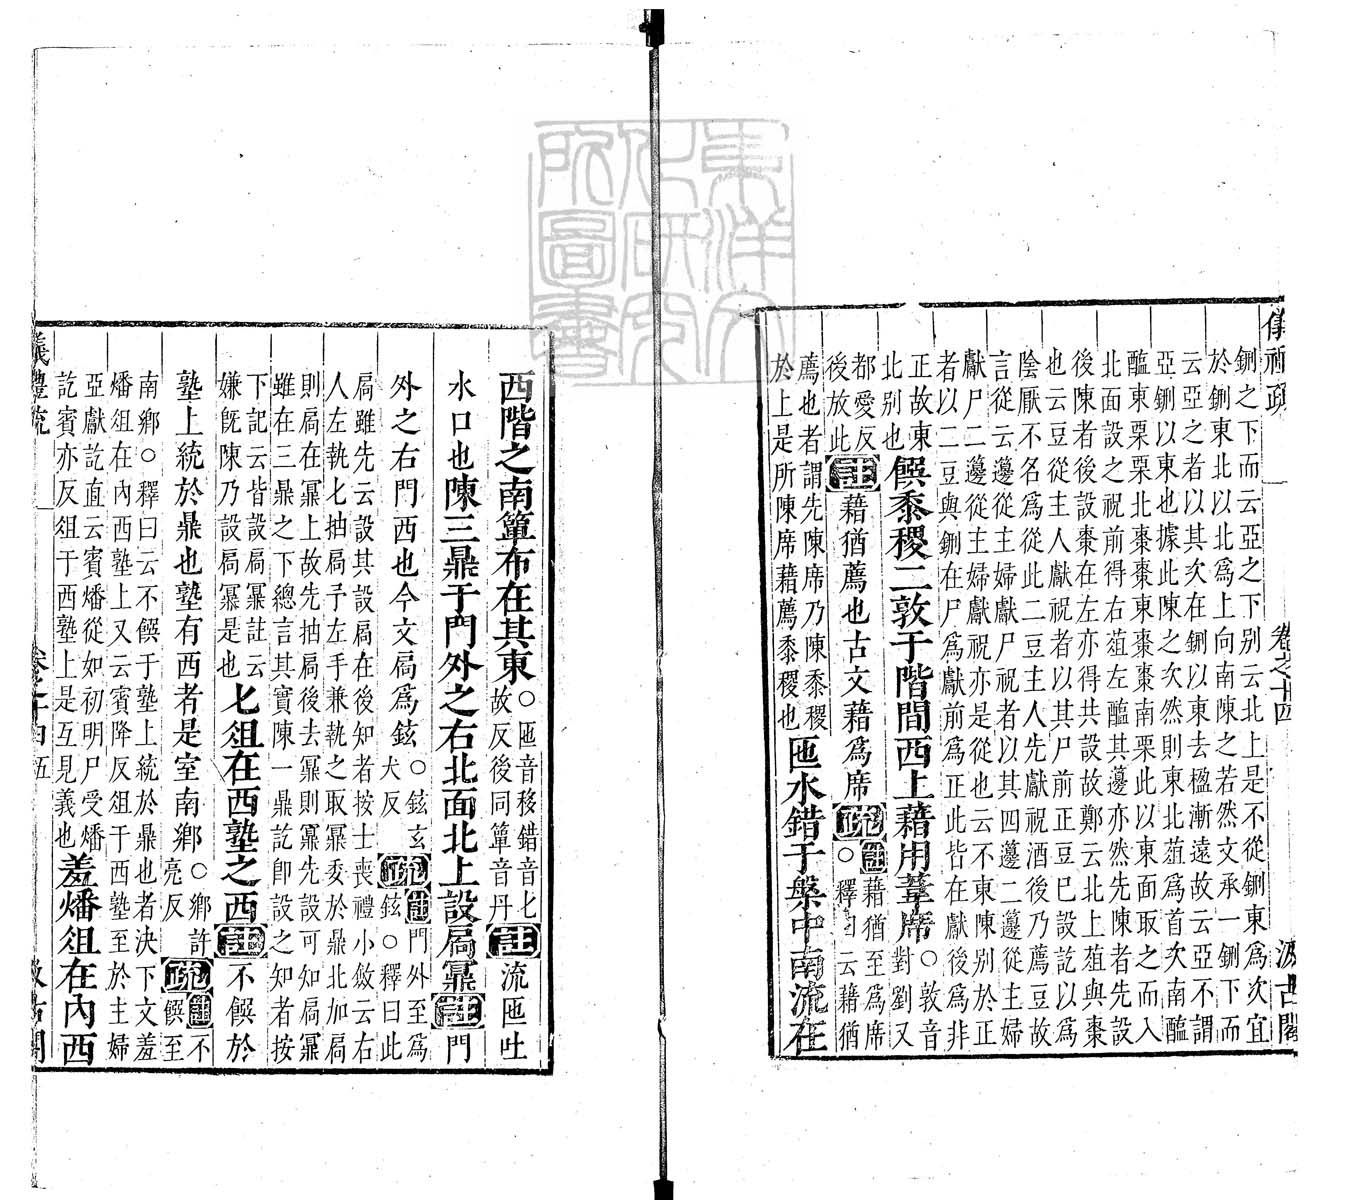 儀禮疏 卷之十四 汲古閣
鉶之下而云亞之下别云北上是不從鉶東爲次宜
於鉶東北以北爲上向南陳之若然文承一鉶下而
云亞之者以其次在鉶以東去楹漸遠故云亞不謂
亞鉶以東也據此陳之次然則東北菹爲首次南醢
醢東栗栗北棗棗東棗棗南栗此以東面取之而入
北面設之祝前得右菹左醢其邊亦然先陳者先設
後陳者後設棗在左亦得共設故鄭云北上菹與棗
也云豆從主人獻祝者以其尸前正豆已設訖以爲
陰厭不名爲從此二豆主人先獻祝酒後乃薦豆故
言從云邊從主婦獻尸祝者以其四籩二籩從主婦
獻尸二邊從主婦獻祝亦是從也云不東陳别於正
者以二豆與鉶在尸爲獻前爲正此皆在獻後爲非
正故東
北别也
饌黍稷二敦于階間西上藉用葦席
○敦音
對劉又
都愛反
後放此
註
藉猶薦也古文藉爲席
疏
註藉猶至爲席
○釋曰云藉猶
薦也者謂先陳席乃陳黍稷
於上是所陳席藉薦黍稷也
匜水錯于槃中南流在
西階之南簞布在其東
○匜音移錯音七
故反後同簞音丹
註
流匜吐
水口也
陳三鼎于門外之右北面北上設扃鼏
註
門
外之右門西也今文扃爲鉉
○鉉玄
犬反
疏
註門外至爲
鉉○釋曰此
扃雖先云設其設扃在後知者按士喪禮小斂云右
人左執匕抽扃予左手兼執之取鼏委於鼎北加扃
則扃在鼏上故先抽扃後去鼏則鼏先設可知扃鼏
雖在三鼎之下總言其實陳一鼎訖卽設之知者按
下記云皆設扃鼏註云
嫌旣陳乃設扃鼏是也
匕俎在西塾之西
註
不饌於
塾上統於鼎也塾有西者是室南鄕
○鄕許
亮反
疏
註不
饌至
南鄕○釋曰云不饌于塾上統於鼎也者決下文羞
燔俎在內西塾上又云賓降反俎于西塾至於主婦
亞獻訖直云賓燔從如初明尸受燔
訖賓亦反俎于西塾上是互見義也
羞燔俎在內西
儀禮疏 卷之十四 五
東洋文化研究所圖書